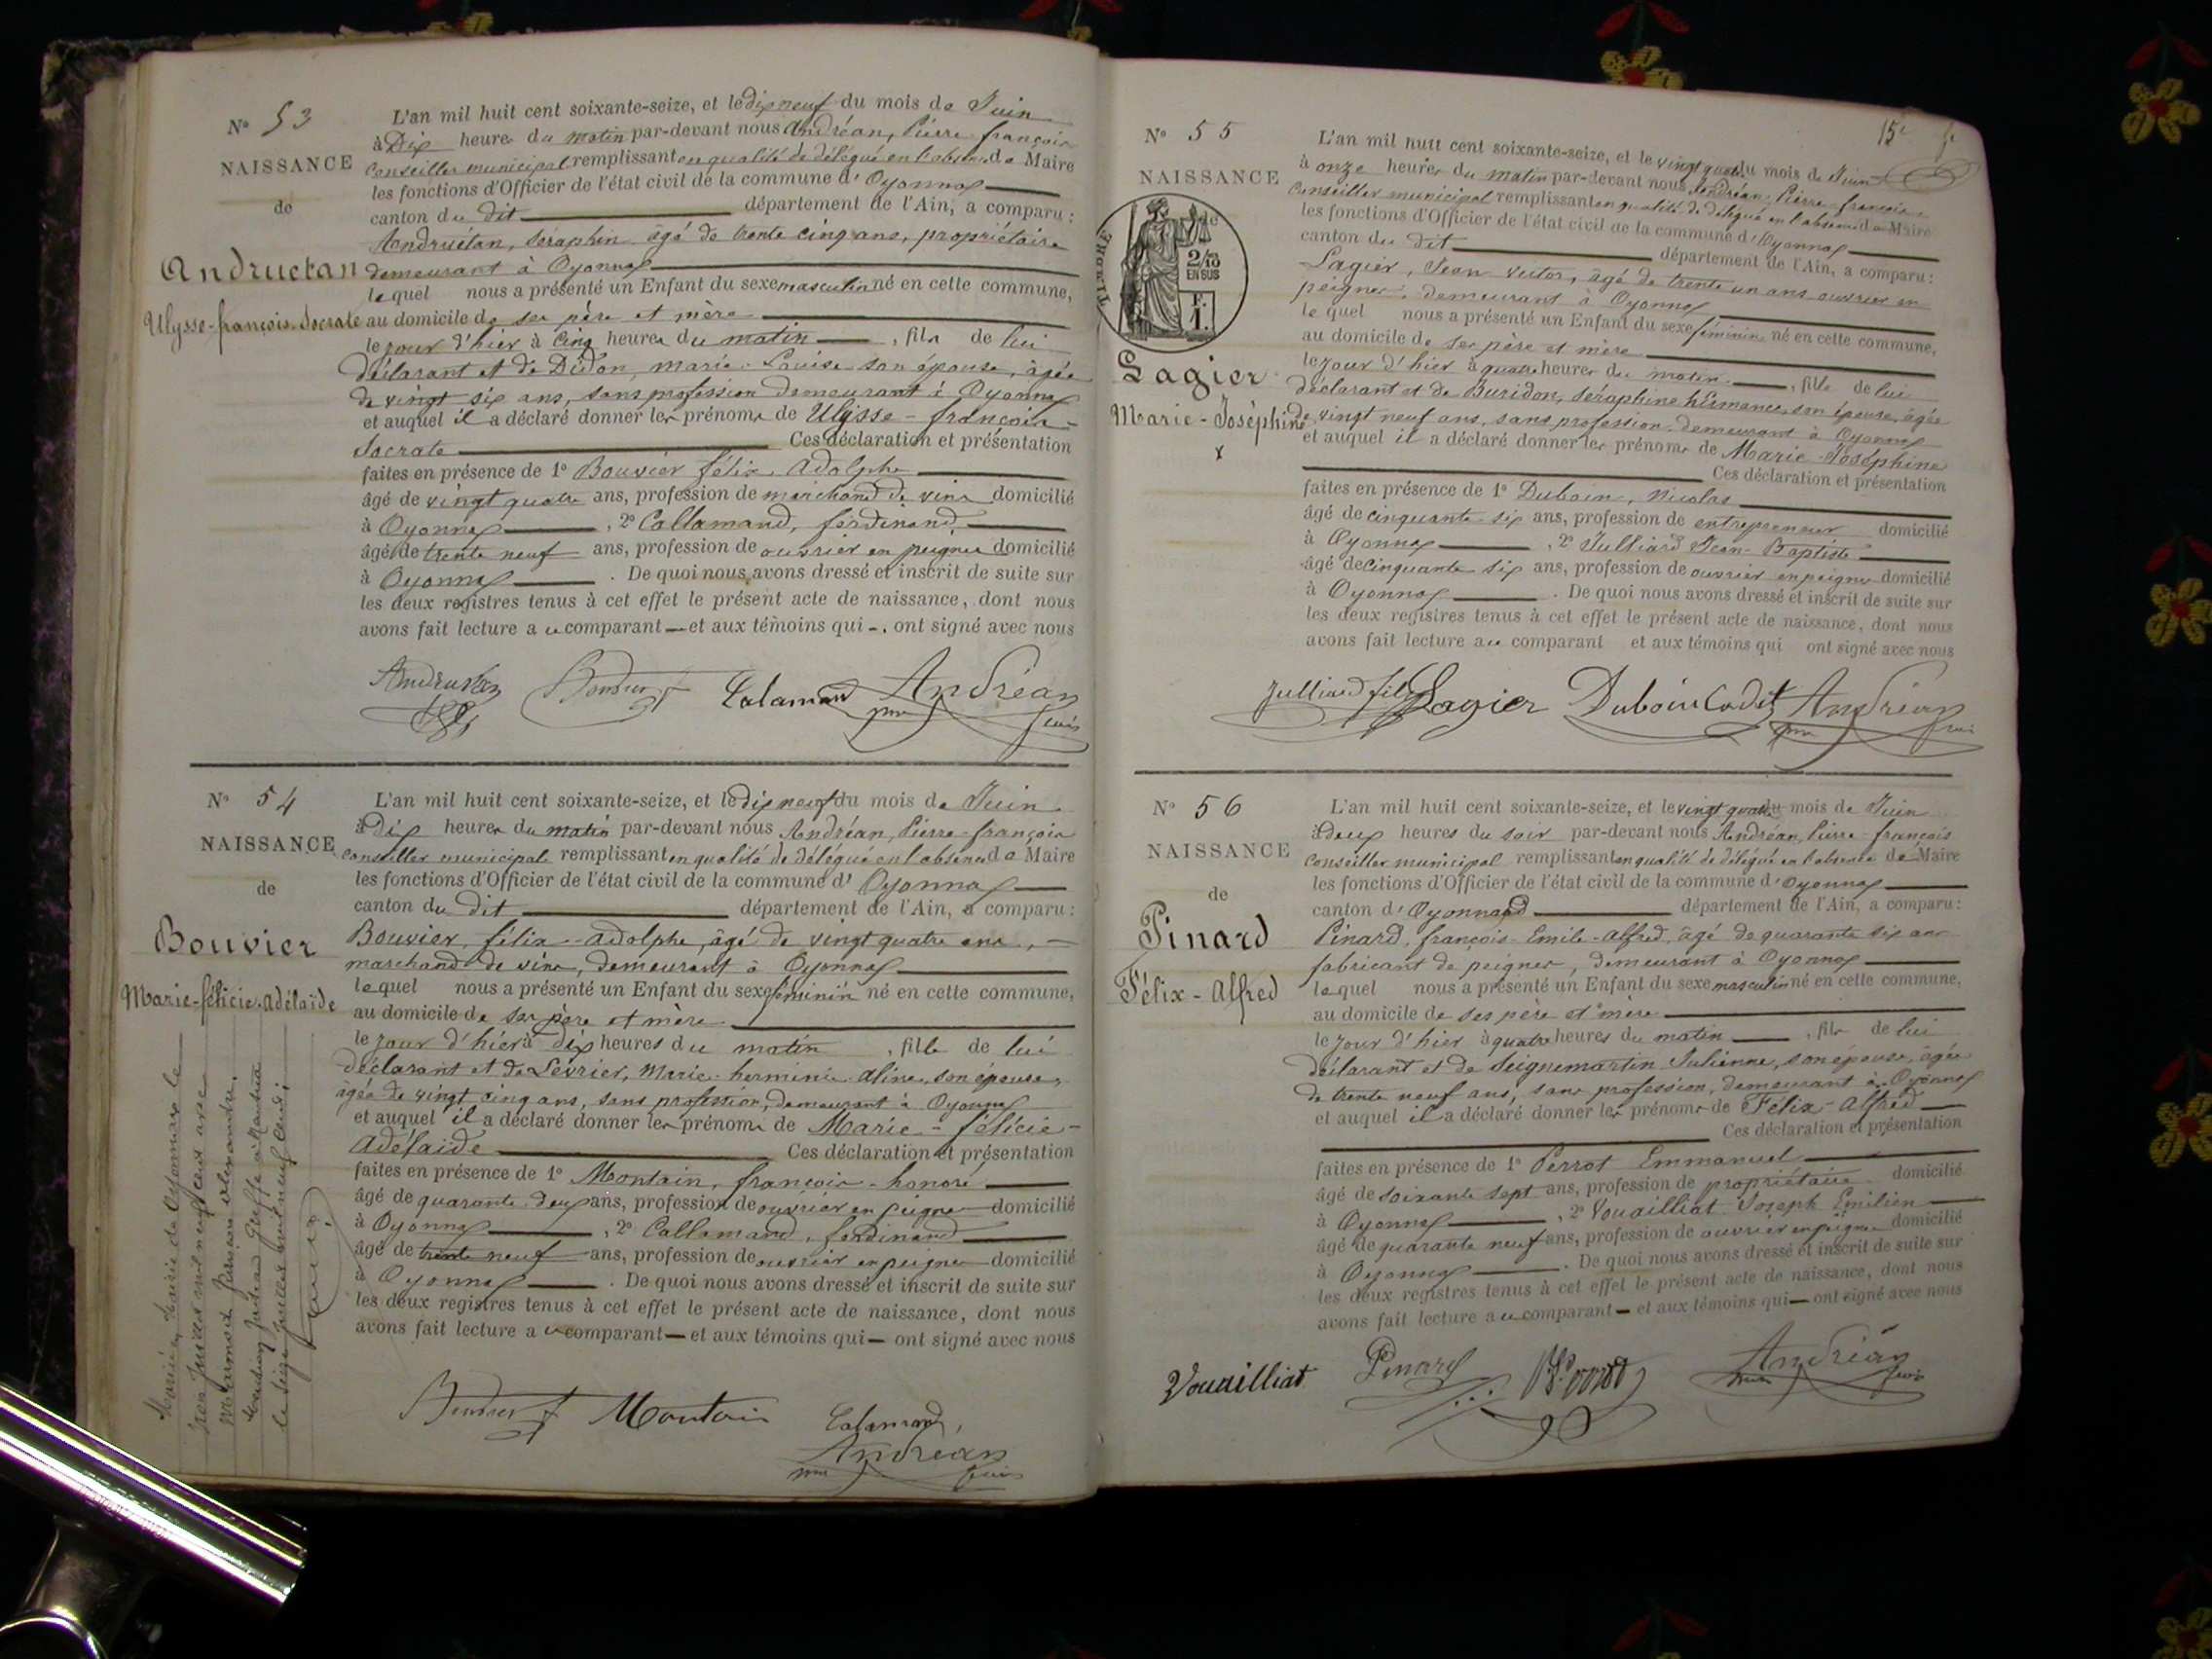 N° 53
NAISSANCE
de
Andruétan
Ulysse-françois-Socrate
L'an mil huit cent soixante-seize, et le dix neuf du mois de Juin
à Dix heures du matin par-devant nous Andréan, Pierre-françois
Conseiller municipal remplissant en qualité de délégué en l'absence de Maire
les fonctions d'Officier de l'état civil de la commune d'Oyonnax
canton du dit département de l'Ain, a comparu :
Andruétan, Séraphin âgé de trente cinq ans, propriétaire
demeurant à Oyonnax
lequel nous a présenté un Enfant du sexe masculin né en cette commune,
au domicile de ses père et mère
le jour d'hier à Cinq heures du matin, fils de lui
déclarant et de Didon, marie-Louise son épouse, âgée
de vingt six ans, sans profession demeurant à Oyonnax
et auquel il a déclaré donner les prénoms de Ulysse-françois-
Socrate Ces déclaration et présentation
faites en présence de 1° Bouvier félix-Adolphe
âgé de vingt quatre ans, profession de marchand de vins domicilié
à Oyonnax, 2° Callamand, ferdinand
âgé de trente neuf ans, profession de ouvrier en peignes domicilié
à Oyonnax. De quoi nous avons dressé et inscrit de suite sur
les deux registres tenus à cet effet le présent acte de naissance, dont nous
avons fait lecture au comparant et aux témoins qui ont signé avec nous
Andruétan Bouvier f Calamand Andréan
N° 54
NAISSANCE
de
Bouvier
Marie-félicie-Adélaïde
L'an mil huit cent soixante-seize, et le dix neuf du mois de Juin
à dix heures du matin par-devant nous Andréan, Pierre-françois
Conseiller municipale remplissant en qualité de délégué en l'absence de Maire
les fonctions d'Officier de l'état civil de la commune d'Oyonnax
canton du dit département de l'Ain, a comparu :
Bouvier, félix-adolphe, âgé de vingt quatre ans,
marchand de vins, demeurant à Oyonnax
lequel nous a présenté un Enfant du sexe féminin né en cette commune,
au domicile de ses père et mère
le jour d'hier à dix heures du matin, fille de lui
déclarant et de Levrier, Marie-herminie-aline, son épouse,
âgée de vingt cinq ans, sans profession, demeurant à Oyonnax
et auquel il a déclaré donner les prénoms de Marie-félicie-
Adélaïde Ces déclaration et présentation
faites en présence de 1° Montain, françois-honoré
âgé de quarante deux ans, profession de ouvrier en peignes domicilié
à Oyonnax, 2° Callamand, ferdinand
âgé de trente neuf ans, profession de ouvrier en peignes domicilié
à Oyonnax. De quoi nous avons dressé et inscrit de suite sur
les deux registres tenus à cet effet le présent acte de naissance, dont nous
avons fait lecture au comparant et aux témoins qui ont signé avec nous
Bouvier f Montain Calamand
Andréan
Mariée à Mairie de Oyonnax le
Juillet mil neuf cent avec
Greffe à Nantua
le seize Juillet mil neuf cent
N° 55
NAISSANCE
de
TIMBRE
2/10
EN SUS
F.
1.
Lagier
Marie-Joséphine
x
15e
L'an mil huit cent soixante-seize, et le vingt quatre du mois de Juin
à onze heures du matin par-devant nous Andréan, Pierre-françois
Conseiller municipal remplissant en qualité de délégué en l'absence de Maire
les fonctions d'Officier de l'état civil de la commune d'Oyonnax
canton du dit département de l'Ain, a comparu :
Lagier, Jean-victor, âgé de trente un ans ouvrier en
peignes, demeurant à Oyonnax
lequel nous a présenté un Enfant du sexe féminin né en cette commune,
au domicile de ses père et mère
le jour d'hier à quatre heures du matin, fille de lui
déclarant et de Buridon, Séraphine hermance, son épouse, âgée
de vingt neuf ans, sans profession demeurant à Oyonnax
et auquel il a déclaré donner les prénoms de Marie-Joséphine
Ces déclaration et présentation
faites en présence de 1° Duboin, Nicolas
âgé de cinquante six ans, profession de entrepreneur domicilié
à Oyonnax, 2° Julliard Jean-Baptiste
âgé de cinquante six ans, profession de ouvrier en peignes domicilié
à Oyonnax. De quoi nous avons dressé et inscrit de suite sur
les deux registres tenus à cet effet le présent acte de naissance, dont nous
avons fait lecture au comparant et aux témoins qui ont signé avec nous
Julliard fils Lagier Duboin Cadet Andréan
N° 56
NAISSANCE
de
Pinard
Félix-Alfred
L'an mil huit cent soixante-seize, et le vingt quatre du mois de Juin
à deux heures du soir par-devant nous Andréan, Pierre-françois
Conseiller municipal remplissant en qualité de délégué en l'absence de Maire
les fonctions d'Officier de l'état civil de la commune d'Oyonnax
canton d'Oyonnax département de l'Ain, a comparu :
Pinard, françois-Emile-Alfred, âgé de quarante six ans
fabricant de peignes, demeurant à Oyonnax
lequel nous a présenté un Enfant du sexe masculin né en cette commune,
au domicile de ses père et mère
le jour d'hier à quatre heures du matin, fils de lui
déclarant et de Seignemartin Julienne, son épouse, âgée
de trente neuf ans, sans profession, demeurant à Oyonnax
et auquel il a déclaré donner les prénoms de Félix-Alfred
Ces déclaration et présentation
faites en présence de 1° Perrot Emmanuel
âgé de soixante sept ans, profession de propriétaire domicilié
à Oyonnax, 2° Vouailliat Joseph Emilien
âgé de quarante neuf ans, profession de ouvrier en peignes domicilié
à Oyonnax. De quoi nous avons dressé et inscrit de suite sur
les deux registres tenus à cet effet le présent acte de naissance, dont nous
avons fait lecture au comparant et aux témoins qui ont signé avec nous
Vouailliat Pinard Perrot Andréan